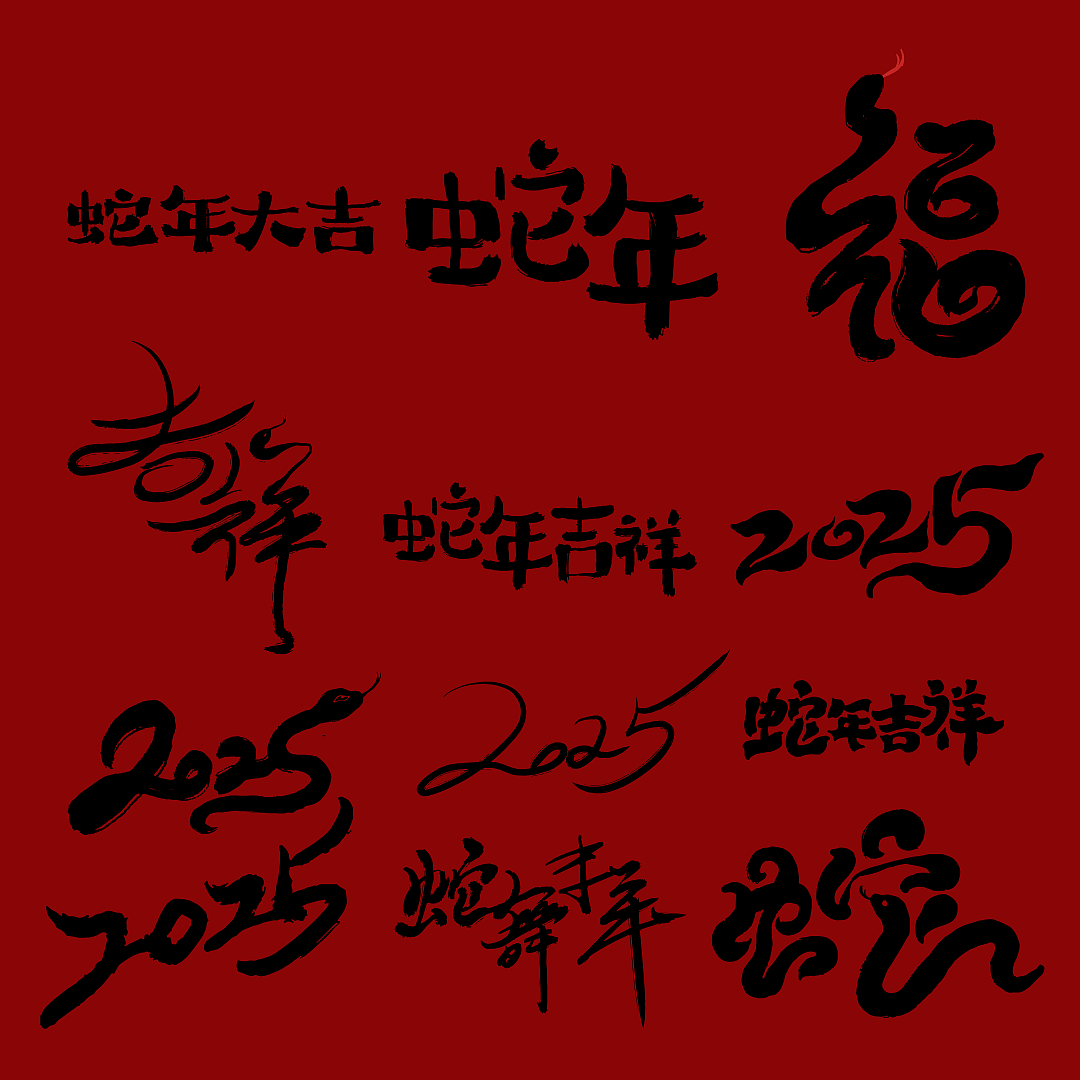 蛇年大吉
蛇年
福
吉祥
蛇年吉祥
2025
2025
2025
蛇年吉祥
2025
蛇舞丰年
蛇